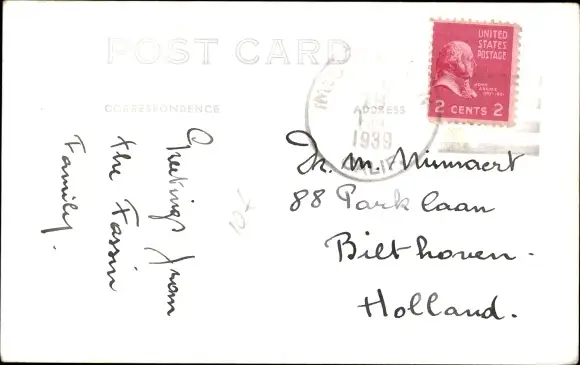 POST CARD
CORRESPONDENCE
ADDRESS
UNITED
STATES
POSTAGE
JOHN ADAMS
2 CENTS 2
1939
CALIF.
Greetings from
the Tassin
Family.
M. Minnaert
88 Parklaan
Bilthoven.
Holland.